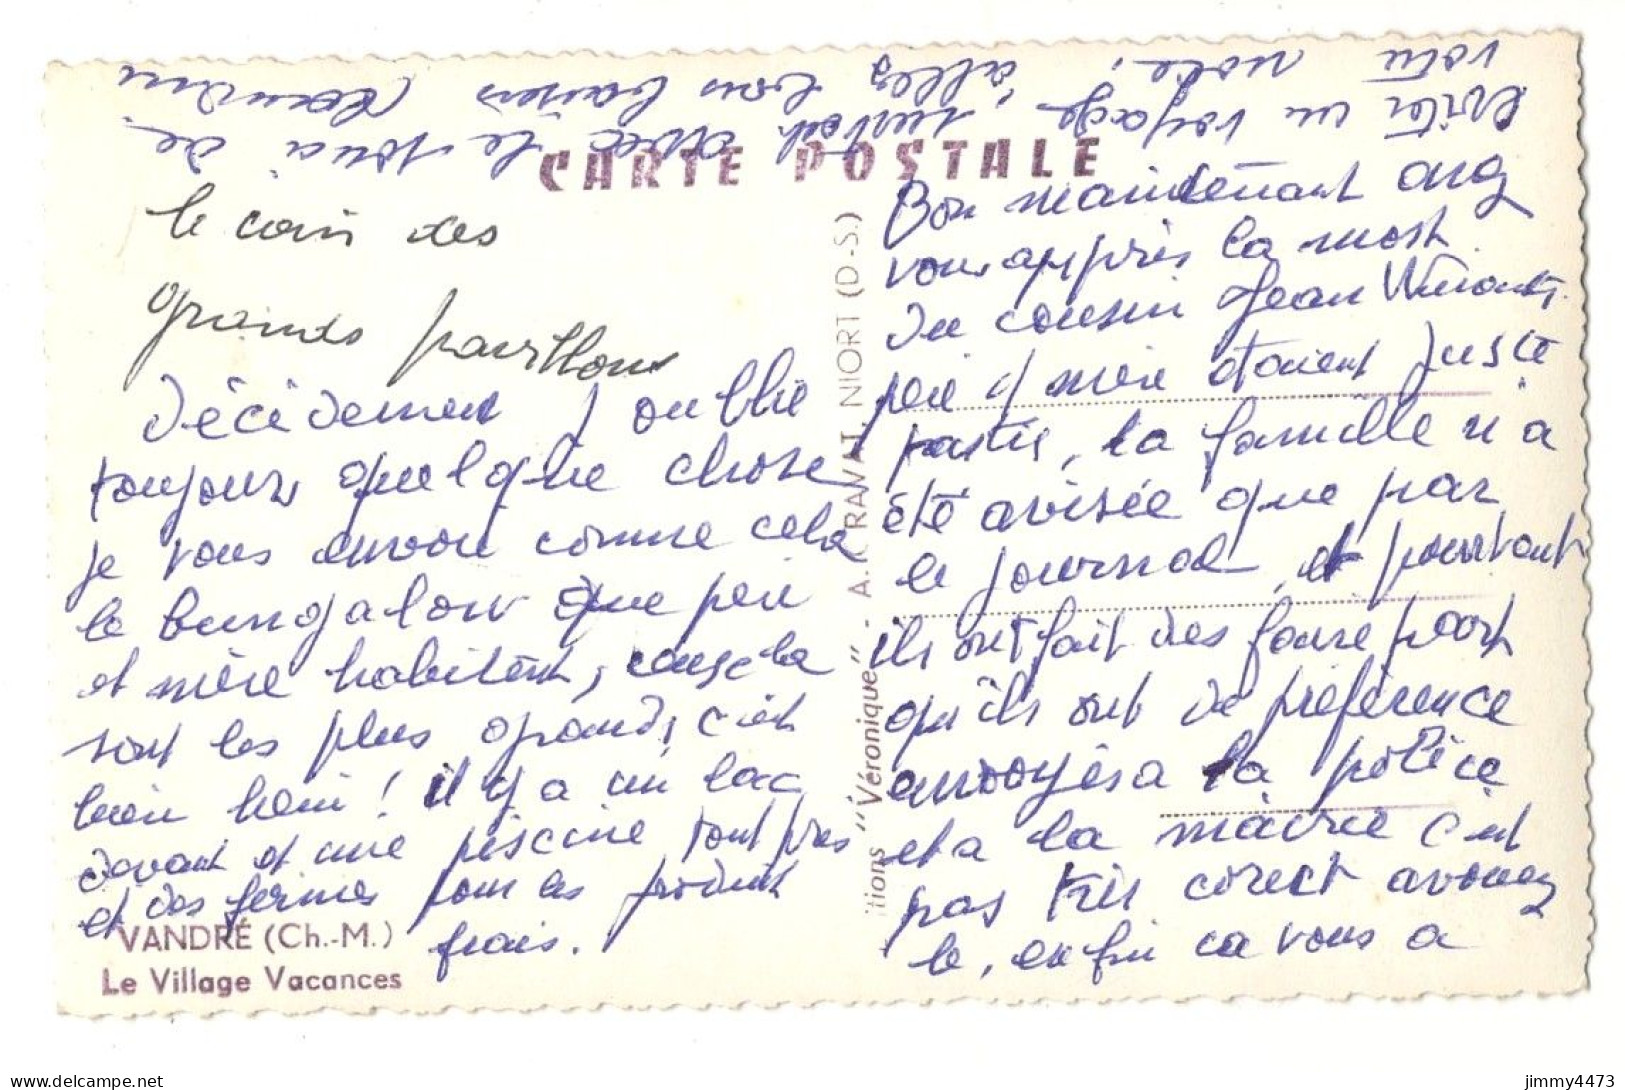 CARTE POSTALE
le coin des
grands pavillons
Décidement j oublie
toujours quelque chose
je vous envoie comme cela
le bungalow que père
et mère habitent, ceux la
sont les plus grands, c'est
bien hein! il y a un lac
devant et une piscine tout près
et des fermes pour les produit
frais.
VANDRÉ (Ch.-M.)
Le Village Vacances
itions "Véronique" - A. RAVAT, NIORT (D-S.)
Bon maintenant
vous apprès la mort
du cousin Jean
père et mère étaient juste
partis, la famille n'a
été avisée que par
le journal, et pourtant
ils ont fait des faire part
qu'ils ont de préférence
envoyés a la police
et a la mairie c'est
pas très corect avouez
le, enfin ca vous a
évité un voyage surtout avec le souci de
votre note, allez bons baisers